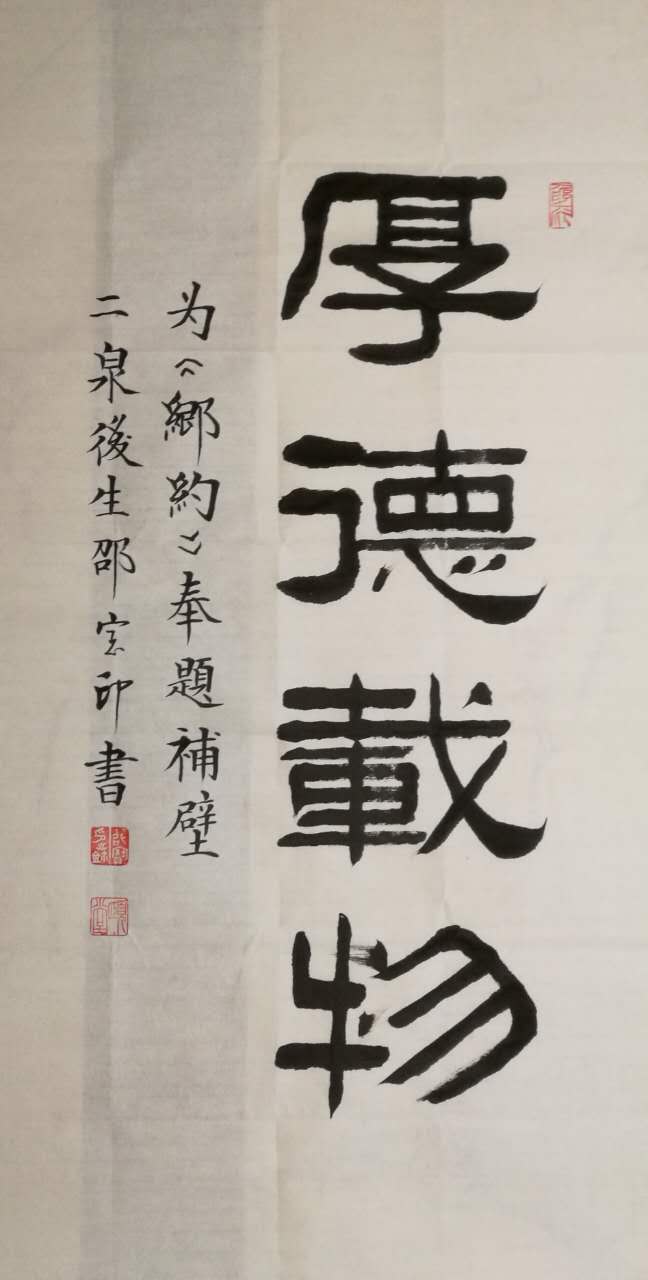 厚德載物
为《鄉約》奉題補壁
二泉後生邵宝印書